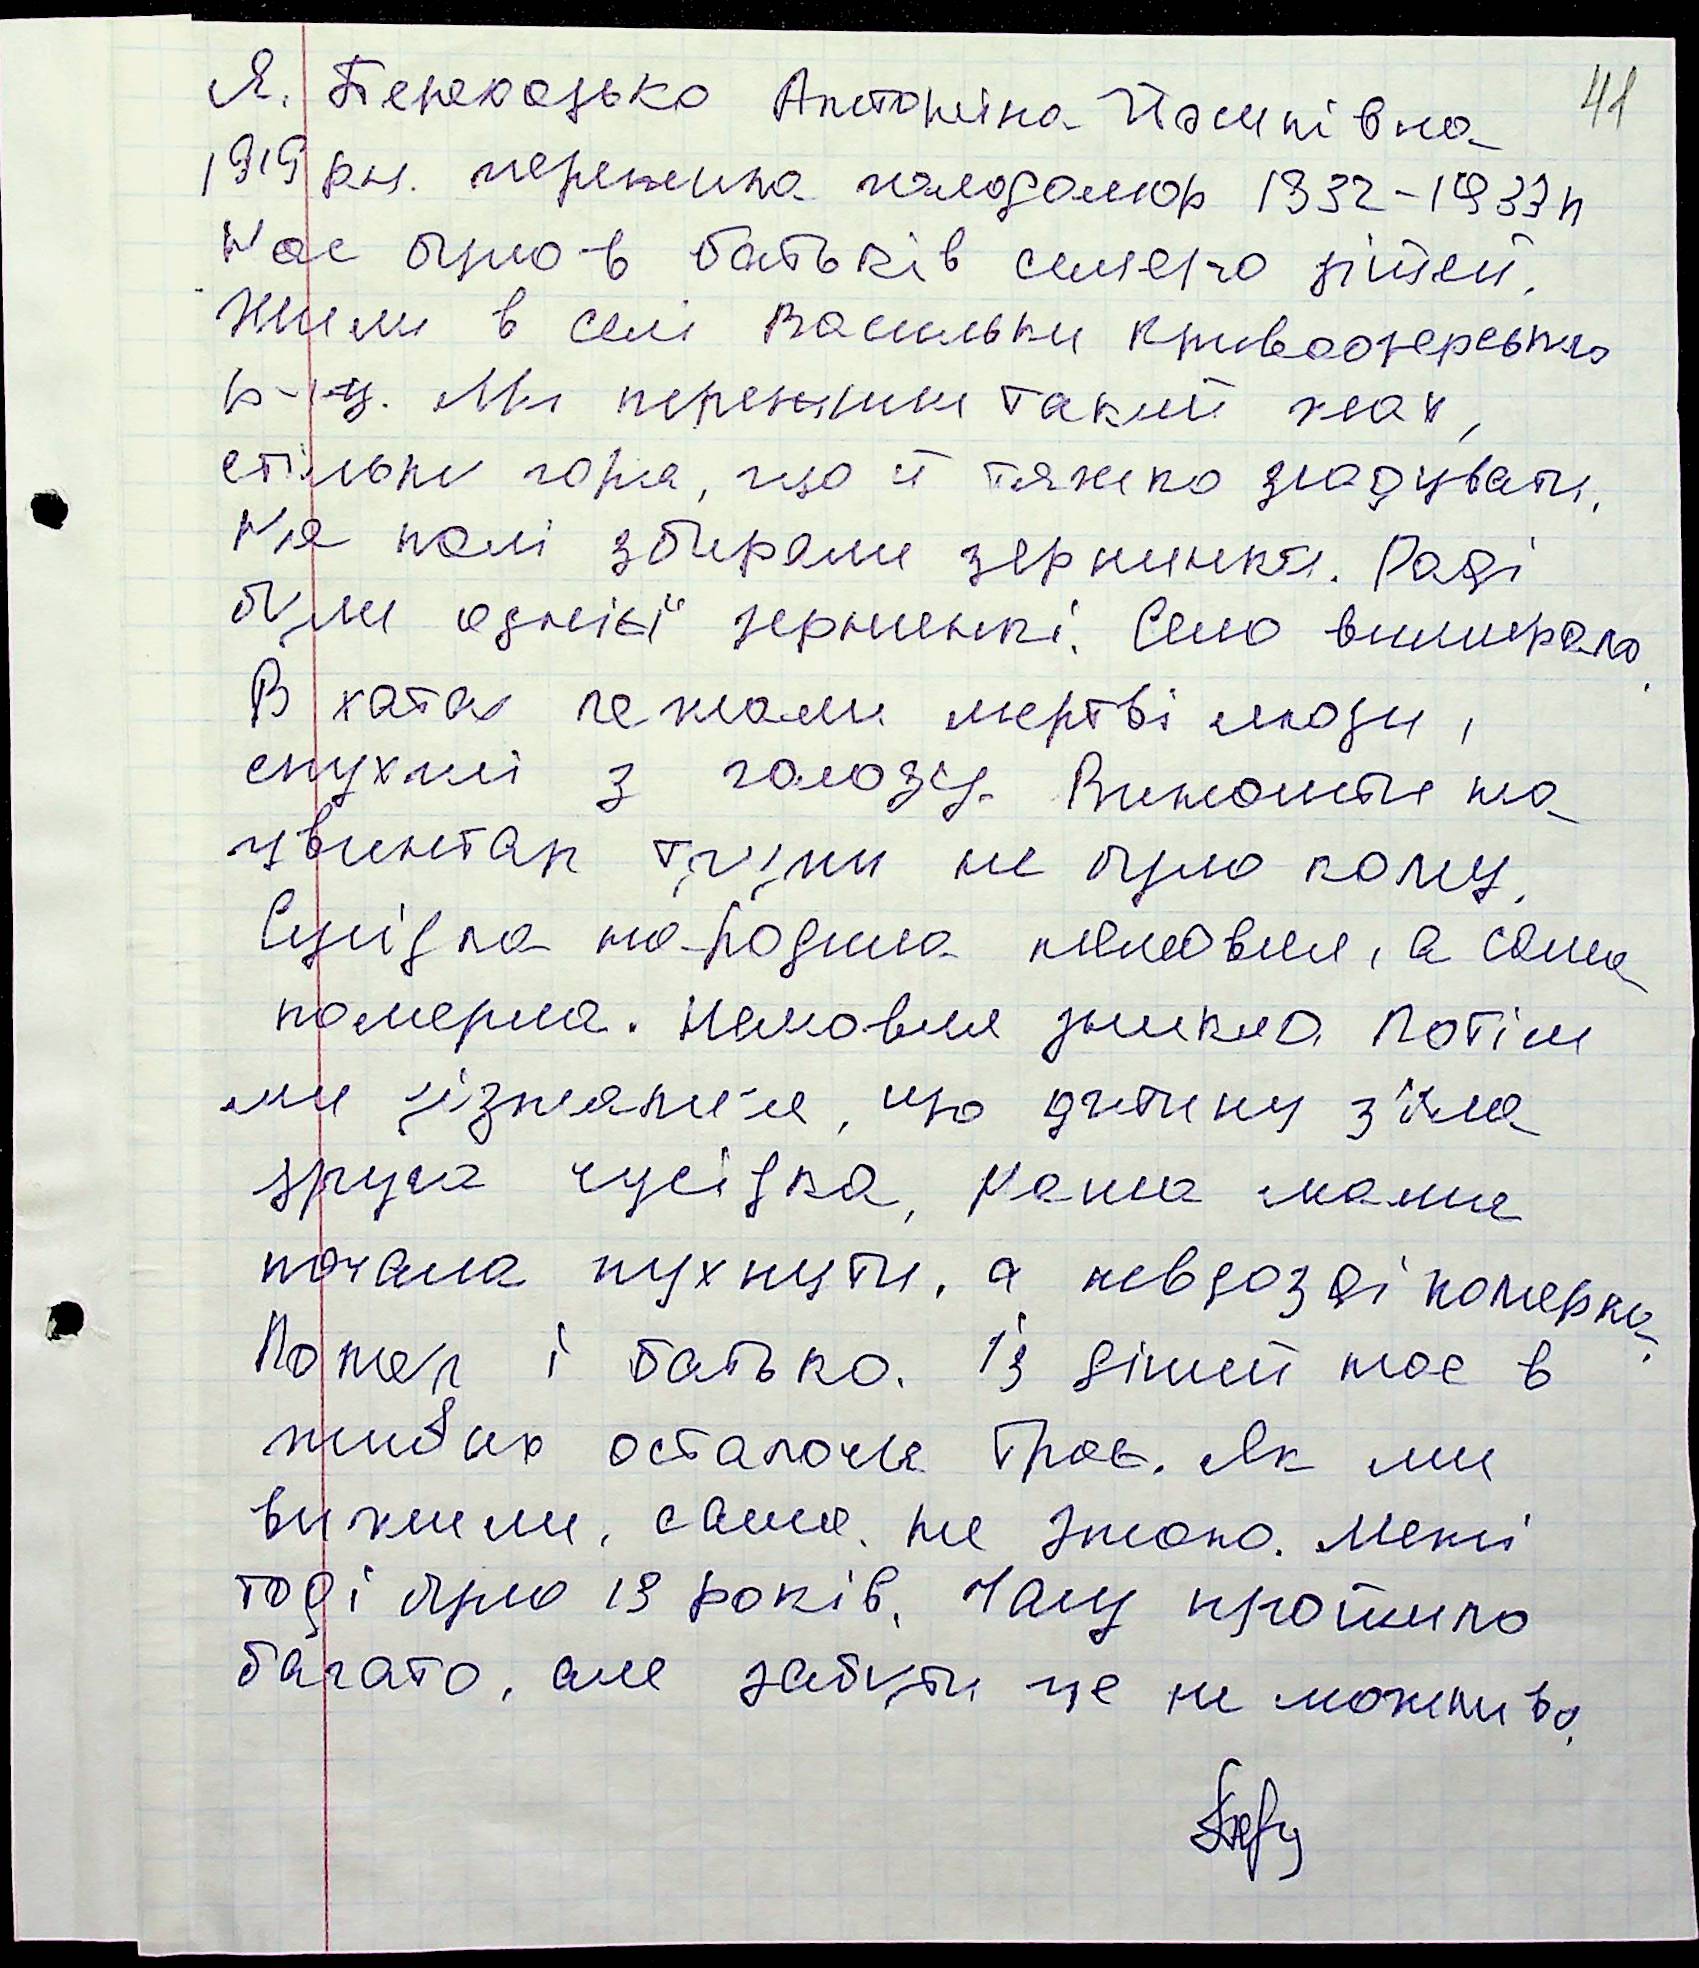 41
Я, Антоніна Йосипівна
1919 р.н. пережила голодомор 1932-1933 р
Нас було в батьків семеро дітей.
Жили в селі Васильки Кривоозерського
р-ну. Ми пережили такий жах,
стільки горя, що й тяжко згадувати.
На полі збирали зернинки. Раді
були одній зернинкі. Село вимирало.
В хатах лежали мертві люди,
спухлі з голоду. Виносити на
цвинтар трупи не було кому.
Сусідка народила немовля, а сама
померла. Немовля зникло. Потім
ми дізналися, що дитину з'їла
друга сусідка. Наша мама
почала пухнути, а невдозді померла.
Помер і батько. Із дітей нас в
живих осталося троє. Як ми
вижили, сама не знаю. Мені
тоді було 13 років. Часу пройшло
багато, але забути це не можливо.